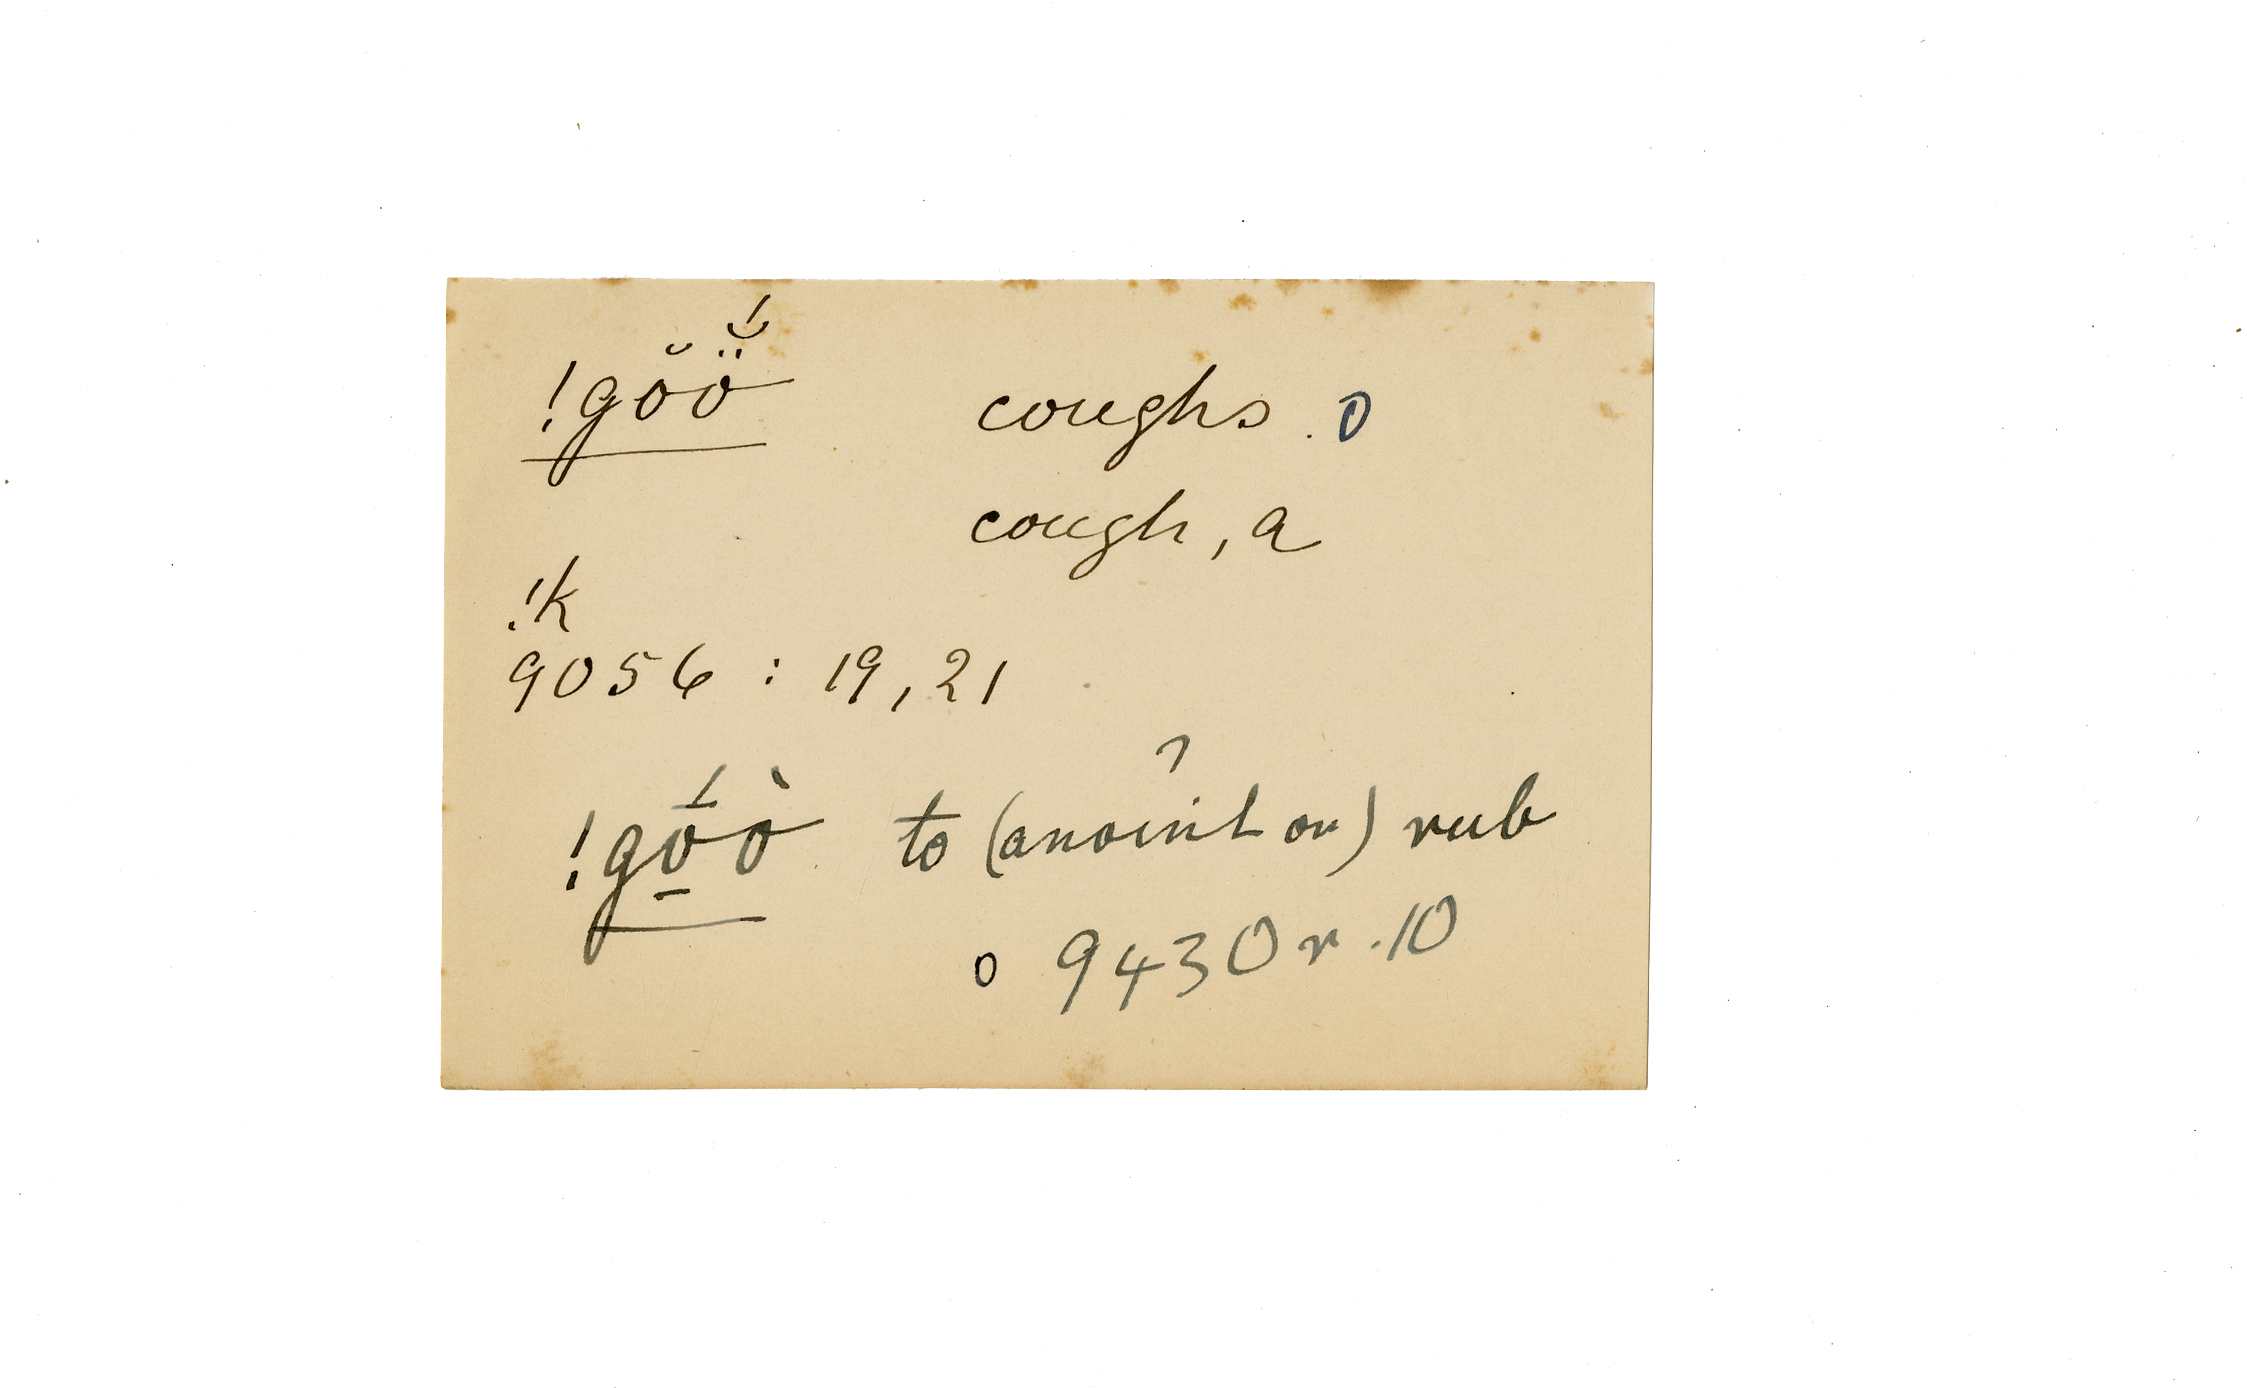 !gŏö̆́ coughs. o
cough, a
!k
9056 : 19, 21
?
!gṓ̱ò to (anoint on) rub
o 9430 r. 10